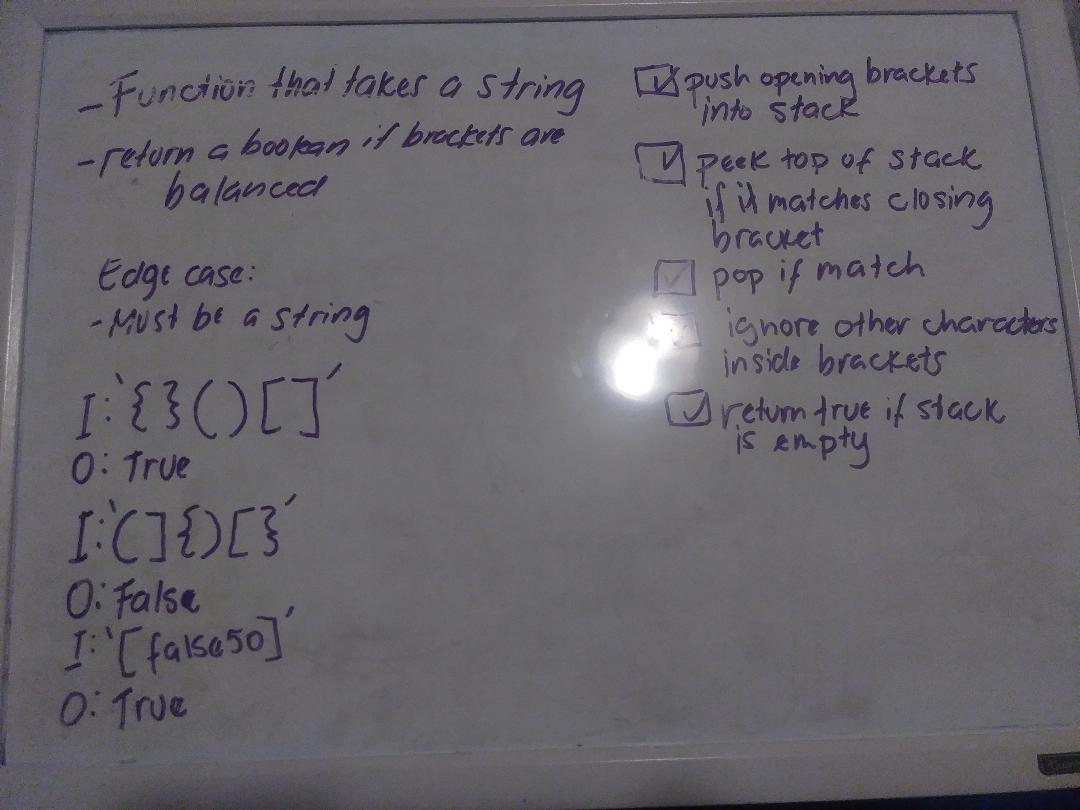 - Function that takes a string
- return a boolean if brackets are
balanced
Edge case:
- Must be a string
I: '{}()[]'
O: True
I: '(]{)[}'
O: False
I: '[false50]'
O: True
push opening brackets
into stack
peek top of stack
if it matches closing
bracket
pop if match
ignore other characters
inside brackets
return true if stack
is empty